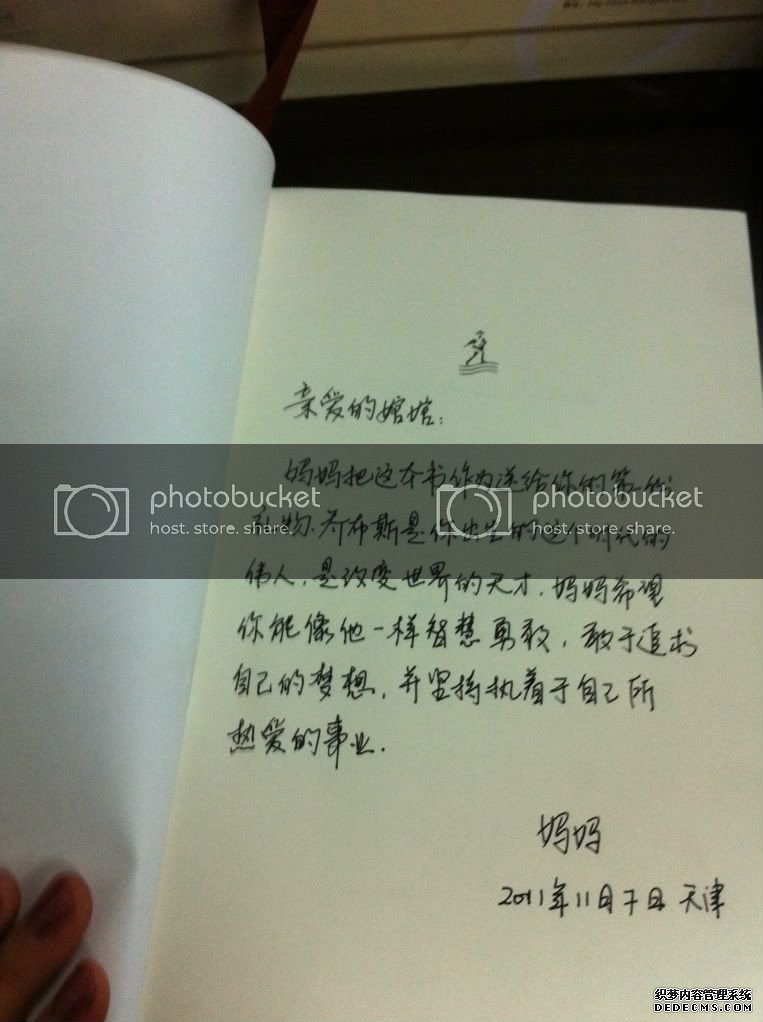 亲爱的婠婠:
妈妈把这本书作为送给你的第一份
礼物.乔布斯是你出生的这个时代的
伟人,是改变世界的天才.妈妈希望
你能像他一样智慧勇敢,敢于追求
自己的梦想,并坚持执着于自己所
热爱的事业.
妈妈
2011年11月7日 天津
photobucket
host. store. share.
photobucket
host. store. share.
织梦内容管理系统
DEDECMS.COM